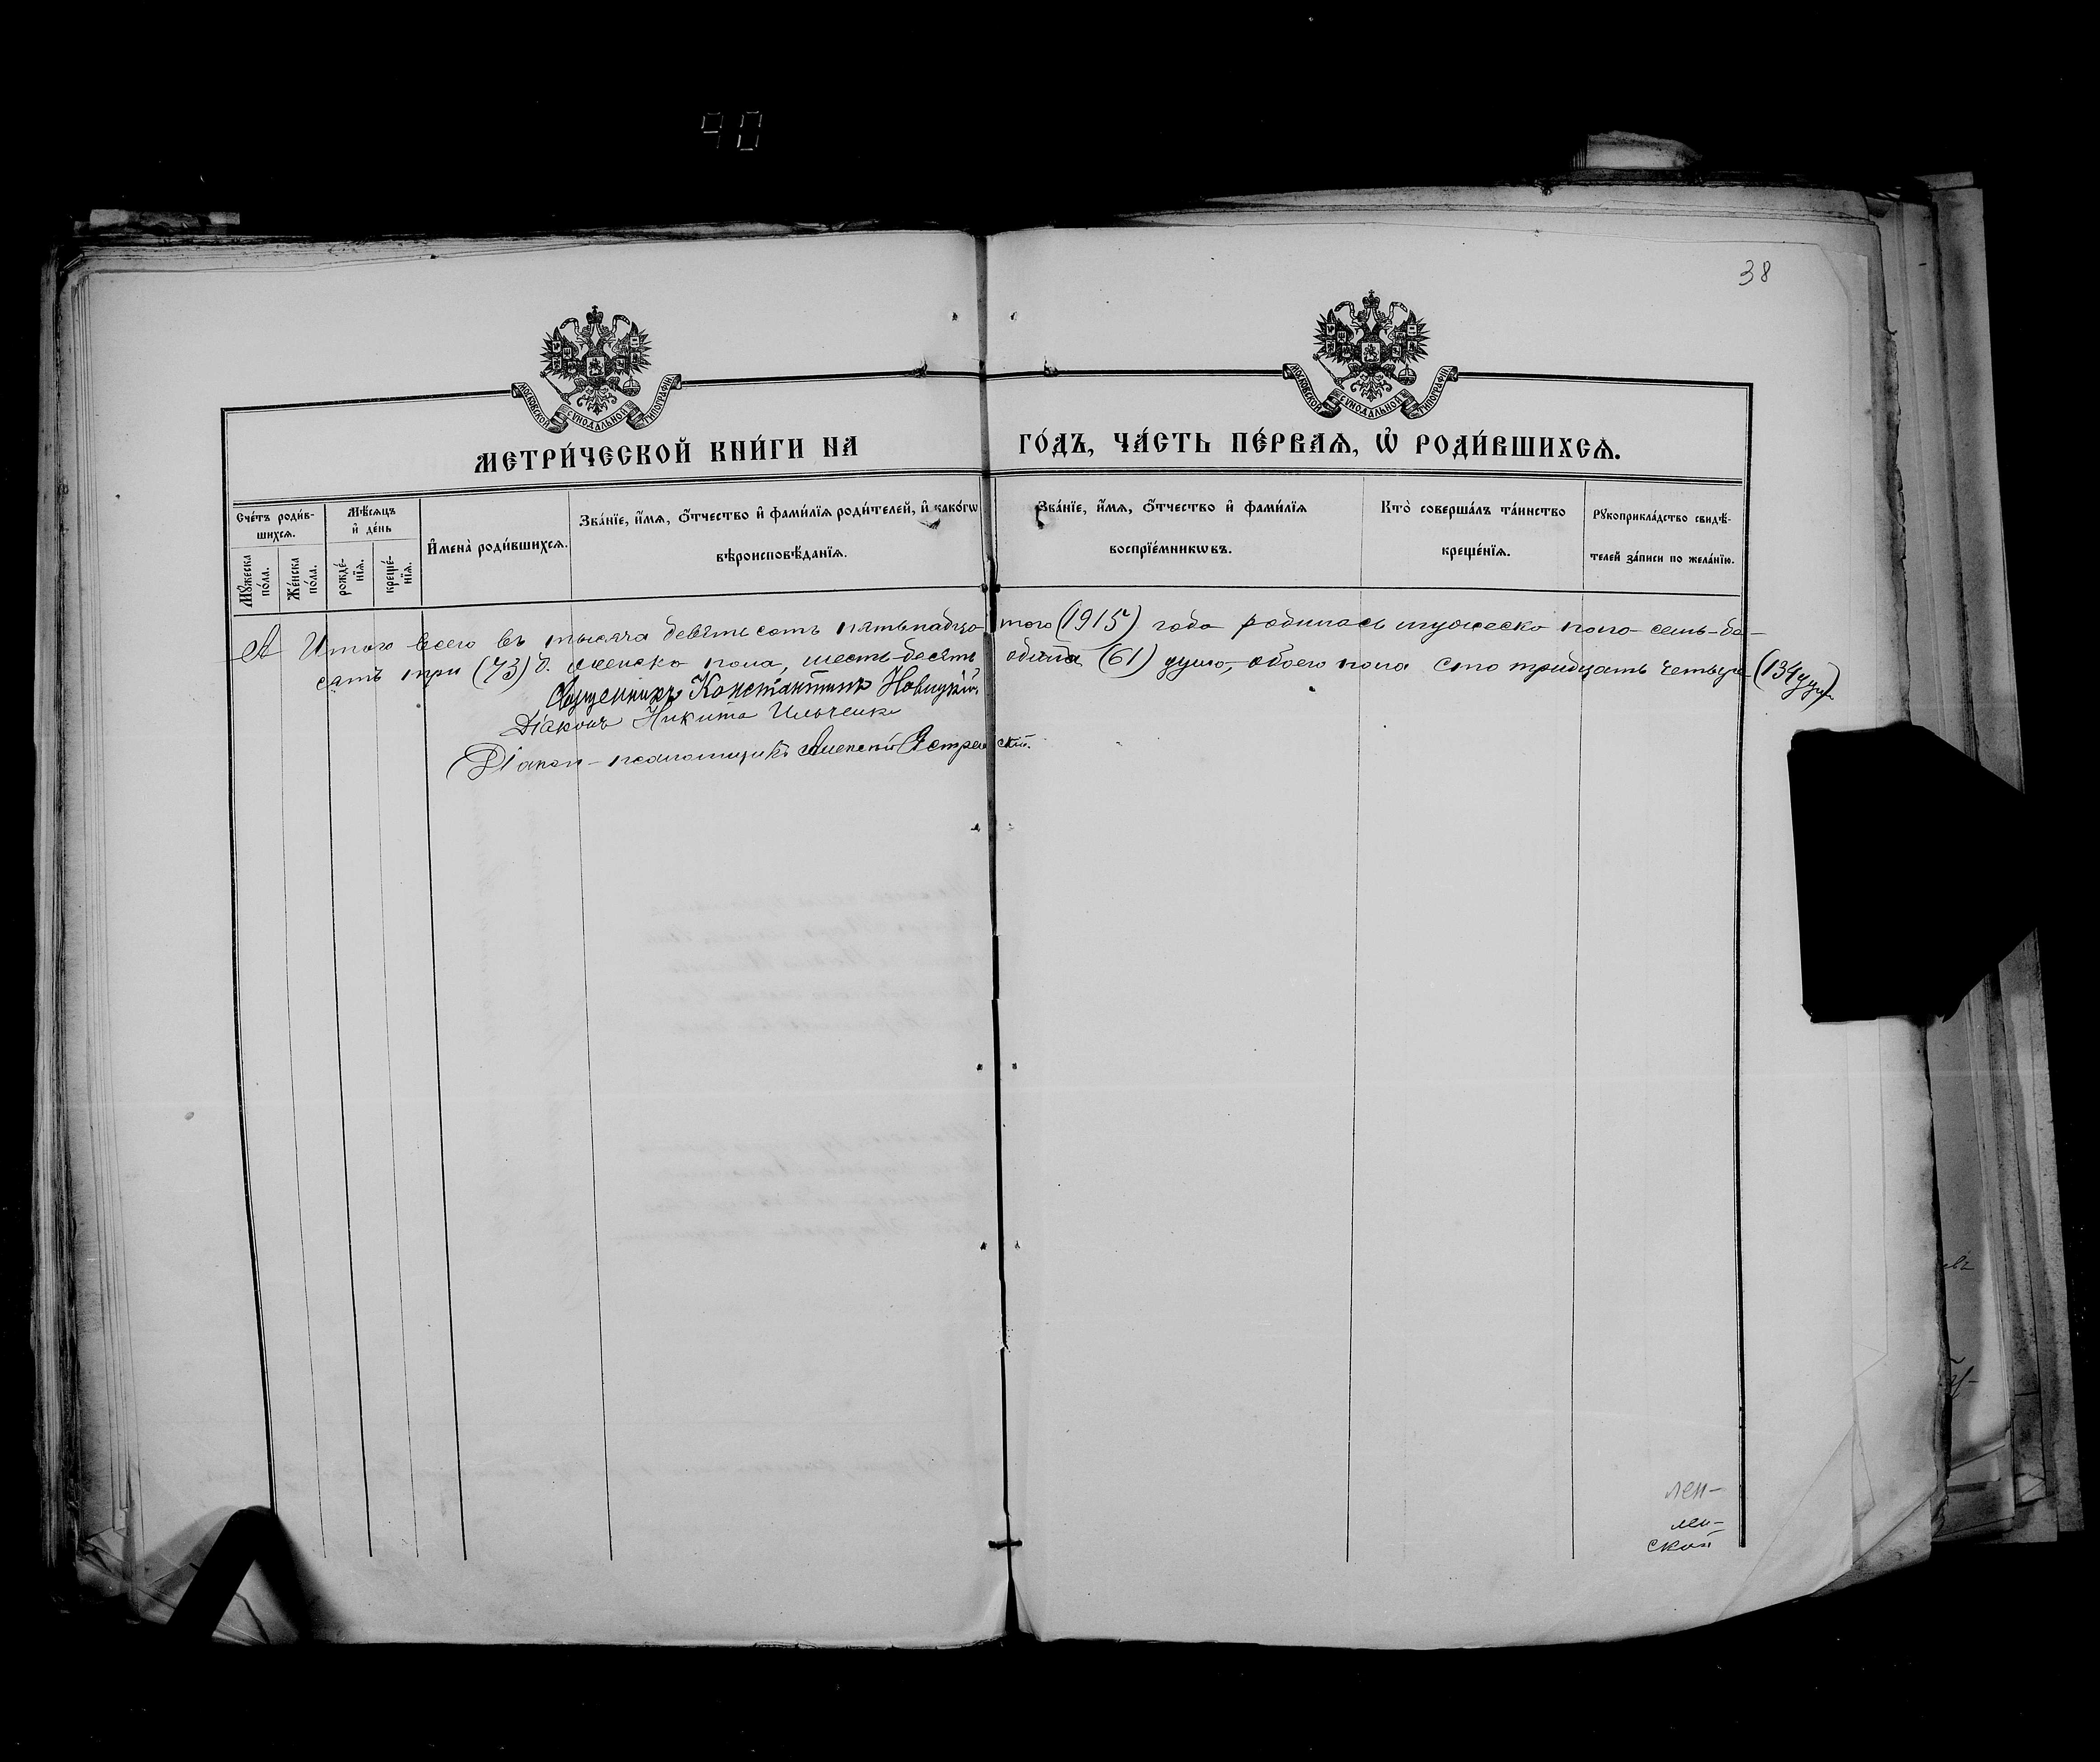 90
38
МОСКОВСКОЙ СѴНОДАЛЬНОЙ ТИПОГРАФІИ
МОСКОВСКОЙ СѴНОДАЛЬНОЙ ТИПОГРАФІИ
МЕТРИ́ЧЕСКОЙ КНИ́ГИ НА ГО́ДЪ, ЧА́СТЬ ПЕ́РВАѦ, Ѡ҆ РОДИ́ВШИХСѦ.
Сче́тъ роди́в-
шихсѧ.
Мꙋ́жеска по́ла.
Же́нска по́ла.
Мѣ́сѧцъ
и҆ де́нь
рожде́-
нїѧ.
креще́-
нїѧ.
И҆мена̀ роди́вшихсѧ.
Зва́нїе, и҆́мѧ, ѻ҆́тчество и҆ фами́лїѧ роди́телей, и҆ како́гѡ
вѣроисповѣ́данїѧ.
Зва́нїе, и҆́мѧ, ѻ҆́тчество и҆ фами́лїѧ
воспрїе́мникѡвъ.
Кто̀ соверша́лъ та́инство
креще́нїѧ.
Рꙋкоприкла́дство свидѣ́-
телей за́писи по жела́нїю.
Итого всего въ тысяча девятьсотъ пятьнадца того (1915) года родилось мужеска пола семь-де-
сятъ три (73) д. женска пола, шесть-десятъ одина (61) душа, обоего пола сто тридцать четыре (134 душ)
Священникъ Константинъ Новицкій.
Діаконъ Никита Ильченко
Діакон-псаломщикъ Алексей
лен-
лен-
ской